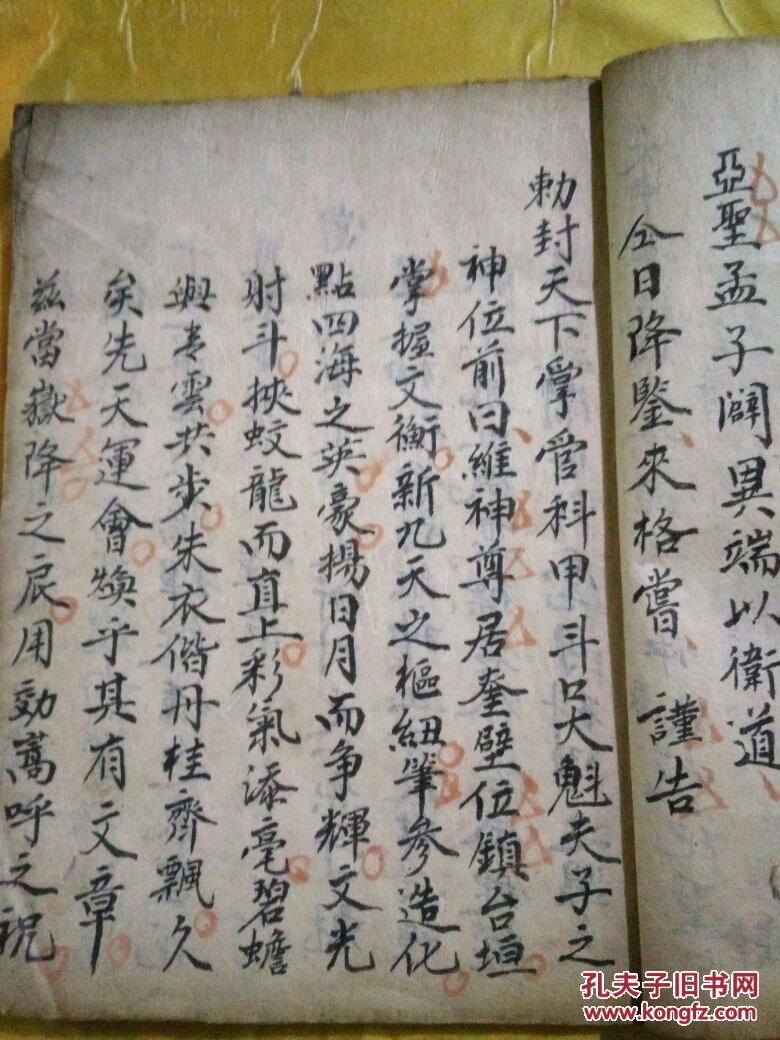 亞聖孟子闢異端以衛道
今日降鑒來格嘗 謹告
勅封天下掌管科甲斗口大魁夫子之
神位前曰維神尊居奎壁位鎮台垣
掌握文衡新九天之樞紐筆參造化
點四海之英豪揚日月而争輝文光
射斗挾蛟龍而直上彩氣添毫碧蟾
與青雲共步朱衣偕丹桂齊飄久
矣先天運會煥乎其有文章
兹當嶽降之辰用効嵩呼之祝
孔夫子旧书网
www.kongfz.com